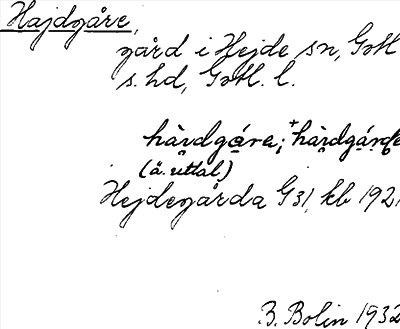 Hajdgåre,
gård i Hejde sn, Gotl
s. hd, Gotl. l.
hàrdgára; +hàrdgárde
(ä. uttal)
Hejdegårda G 31, kb 1921
B. Bolin 1932